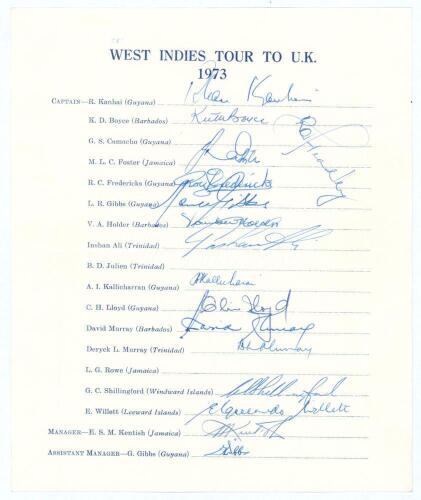 WEST INDIES TOUR TO U.K.
1973
CAPTAIN—R. Kanhai (Guyana) Rohan Kanhai
K. D. Boyce (Barbados) Keith Boyce
G. S. Camacho (Guyana)
M. L. C. Foster (Jamaica)
R. C. Fredericks (Guyana) Roy Fredericks
L. R. Gibbs (Guyana) Lance Gibbs
V. A. Holder (Barbados) Vanburn Holder
Inshan Ali (Trinidad) Inshan Ali
B. D. Julien (Trinidad)
A. I. Kallicharran (Guyana) AKallicharran
C. H. Lloyd (Guyana) Clive Lloyd
David Murray (Barbados) David Murray
Deryck L. Murray (Trinidad) DLMurray
L. G. Rowe (Jamaica)
G. C. Shillingford (Windward Islands) GCShillingford
E. Willett (Leeward Islands) Elquemedo Willett
MANAGER—E. S. M. Kentish (Jamaica) Kentish
ASSISTANT MANAGER—G. Gibbs (Guyana) Gibbs